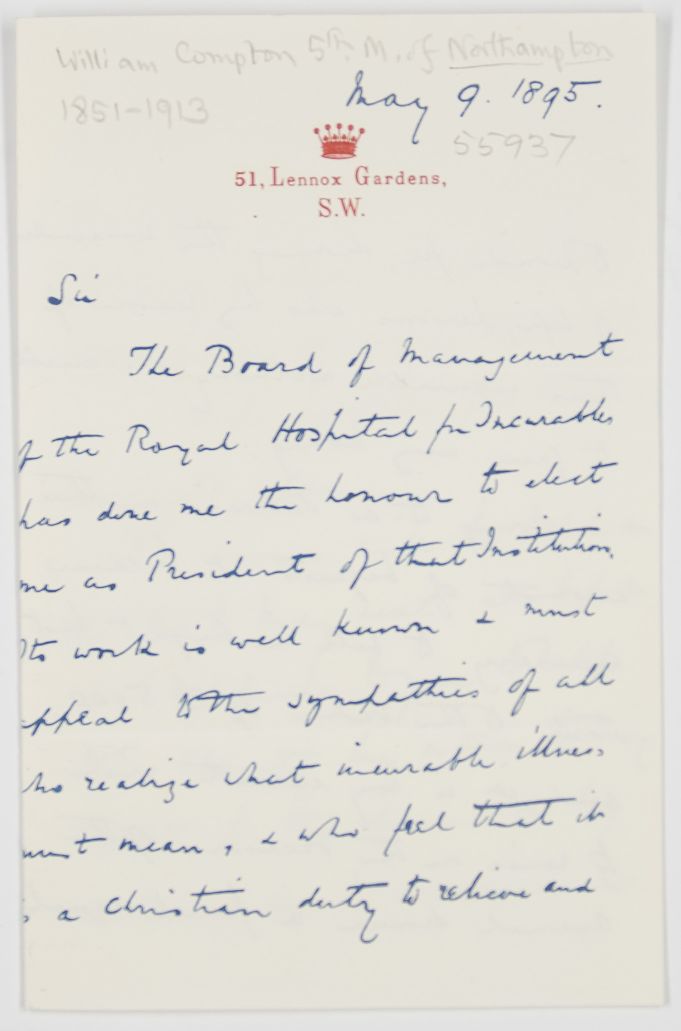 William Compton 5th. M. of Northampton
1851-1913
May 9. 1895.
55937
51, Lennox Gardens,
S.W.
Sir
The Board of Management
of the Royal Hospital for Incurables
has done me the honour to elect
me as President of that Institution.
Its work is well known & must
appeal to the sympathies of all
who realize what incurable illness
must mean, & who feel that it
is a Christian duty to relieve and